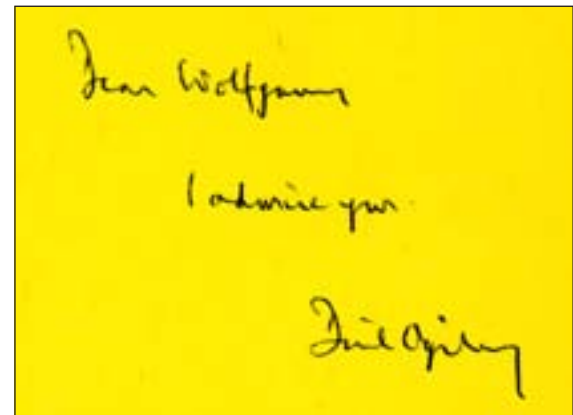 Dear Wolfgang
I admire you.
David Ogilvy